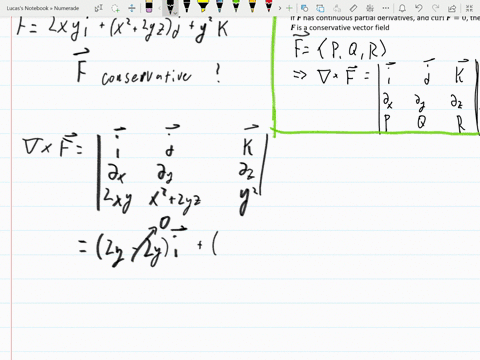 Lucas's workbook • Numerade
F⃗ = 2xy i⃗ + (x²+2yz) j⃗ + y² K⃗
F⃗ conservative ?
If F has continuous partial derivatives, and curl F = 0, the
F is a conservative vector field
F⃗ = ⟨P, Q, R⟩
⇒ ∇ × F⃗ = | i⃗ j⃗ K⃗ |
∂x ∂y ∂z
P Q R
∇ × F⃗ = | i⃗ j⃗ K⃗ |
∂x ∂y ∂z
2xy x²+2yz y²
= (2y - 2y) i⃗ + (
0